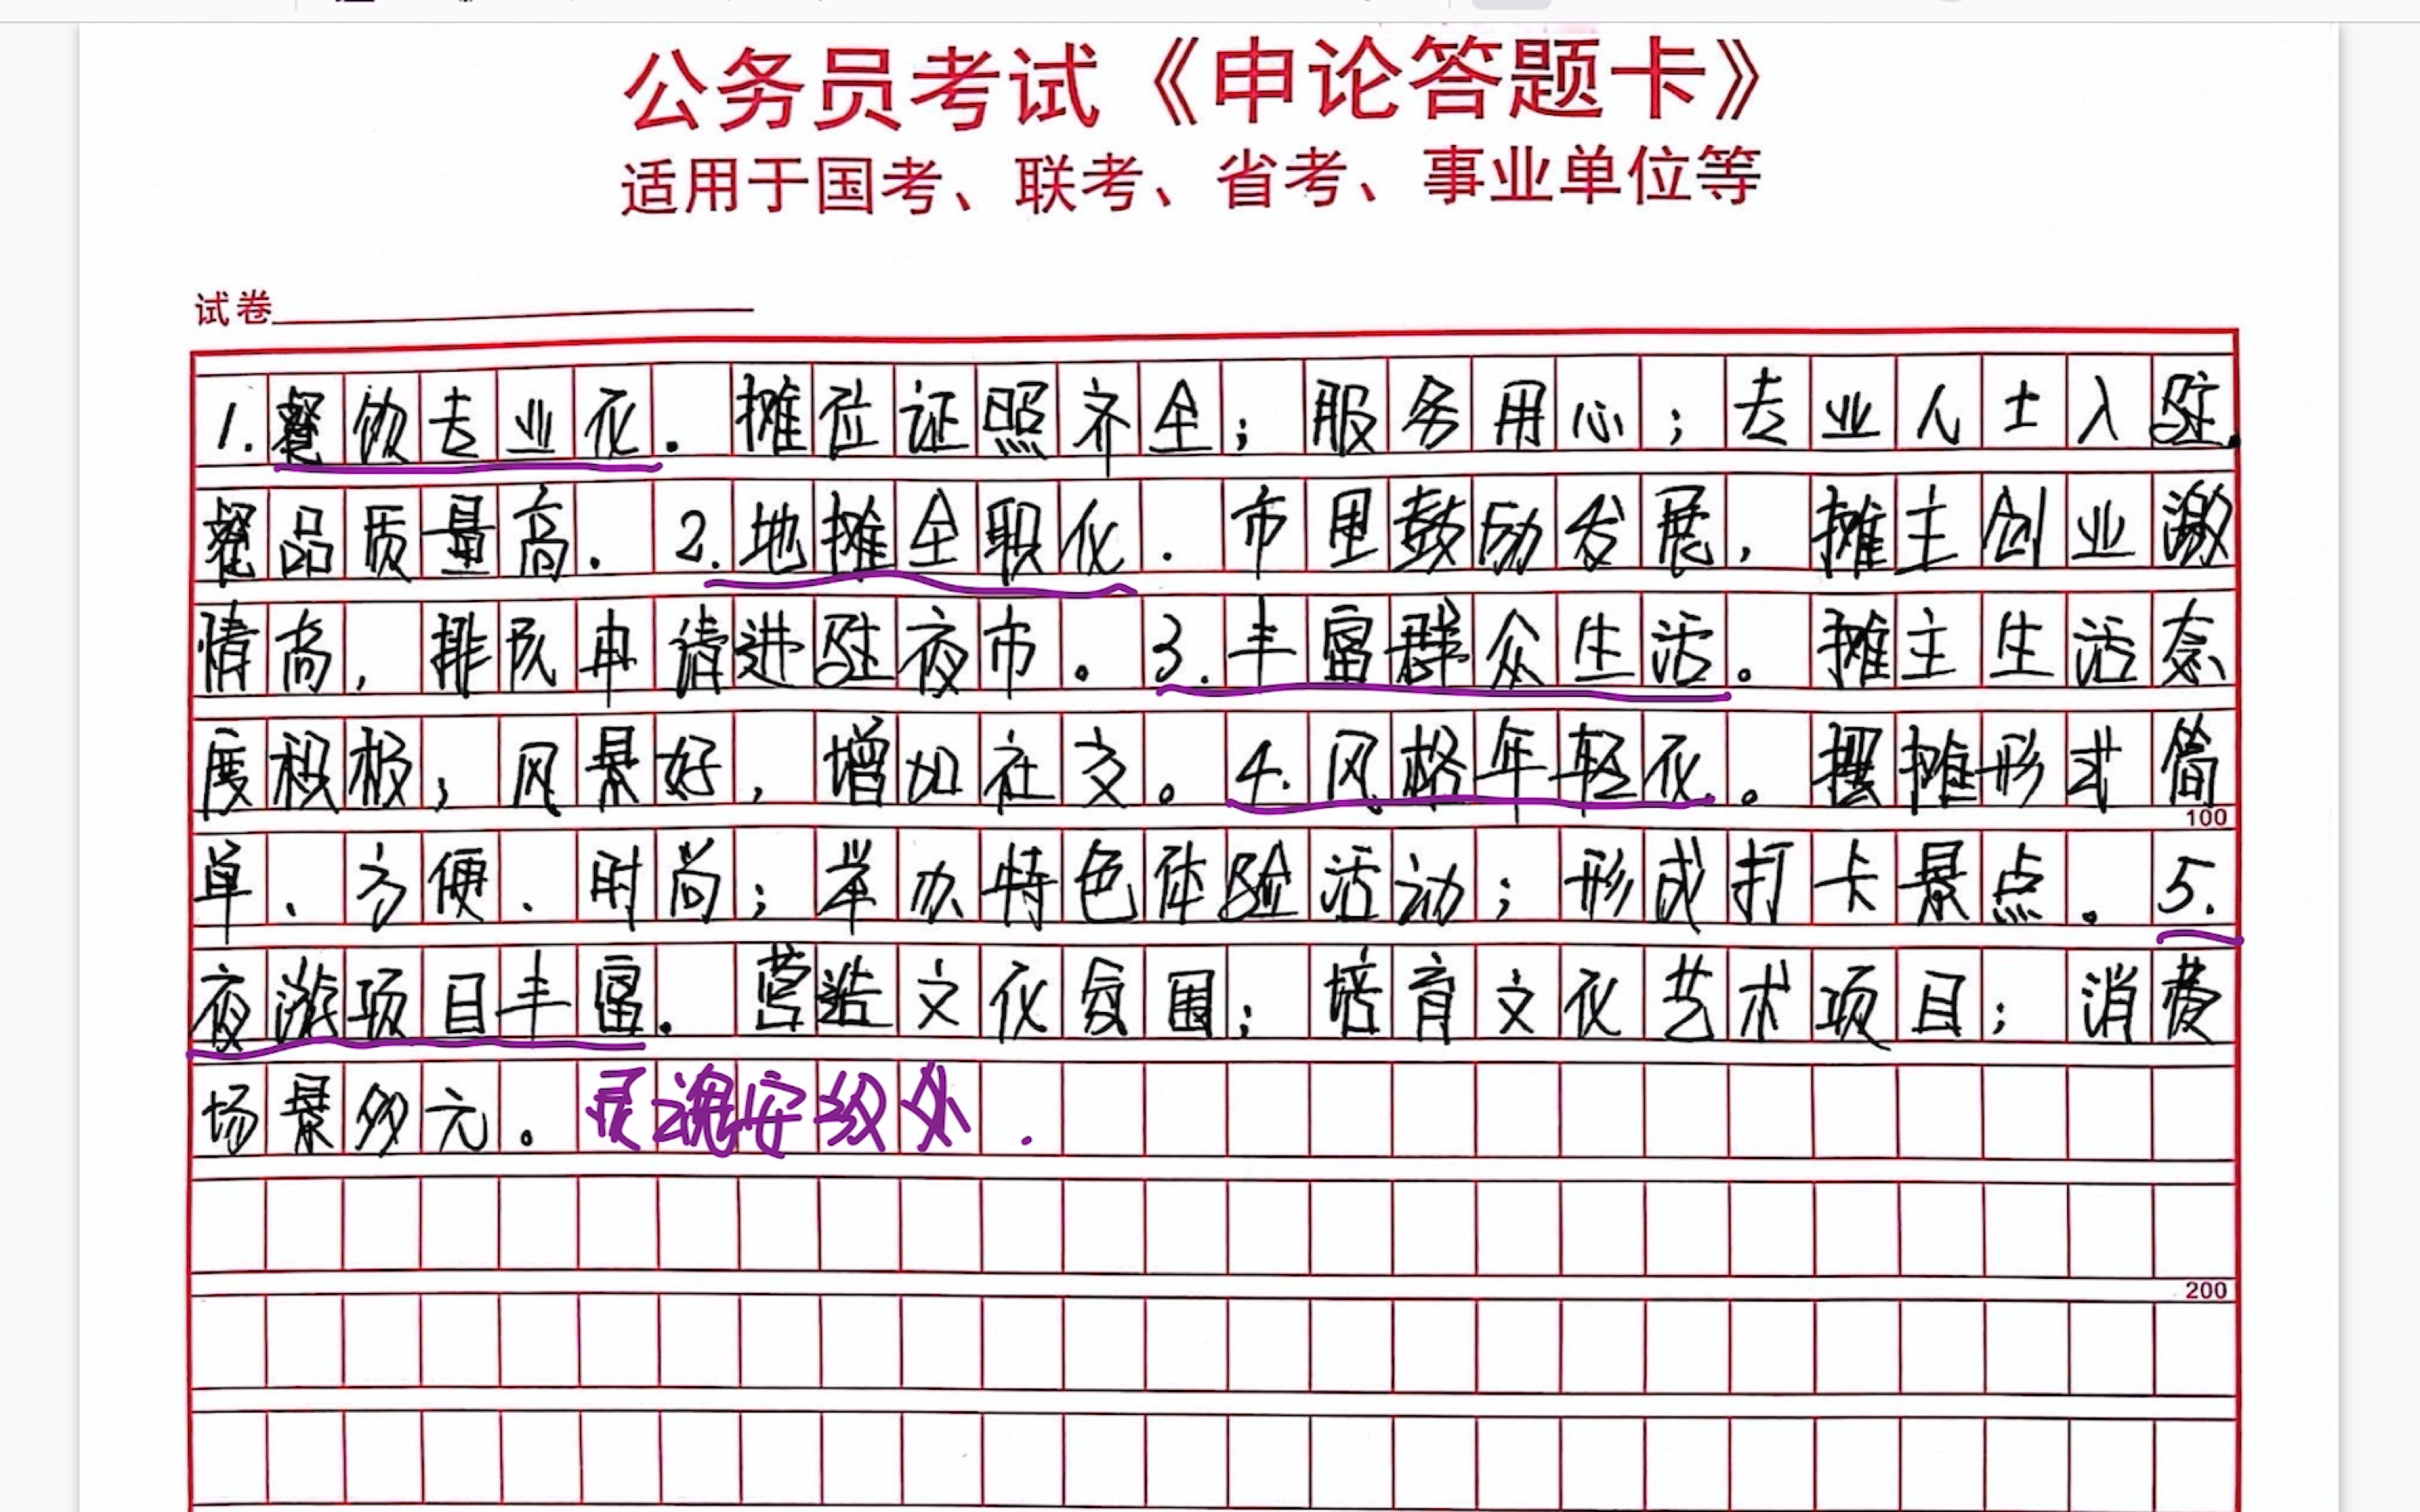 公务员考试《申论答题卡》
适用于国考、联考、省考、事业单位等
试卷
1.餐饮专业化.摊位证照齐全;服务用心;专业人士入驻.
餐品质量高.2.地摊全职化.市里鼓励发展,摊主创业激
情高,排队申请进驻夜市。3.丰富群众生活。摊主生活态
度积极;风景好,增加社交。4.风格年轻化。摆摊形式简
100
单、方便、时尚;举办特色体验活动;形成打卡景点。5.
夜游项目丰富.营造文化氛围;培育文化艺术项目;消费
场景多元。灵魂安放处.
200